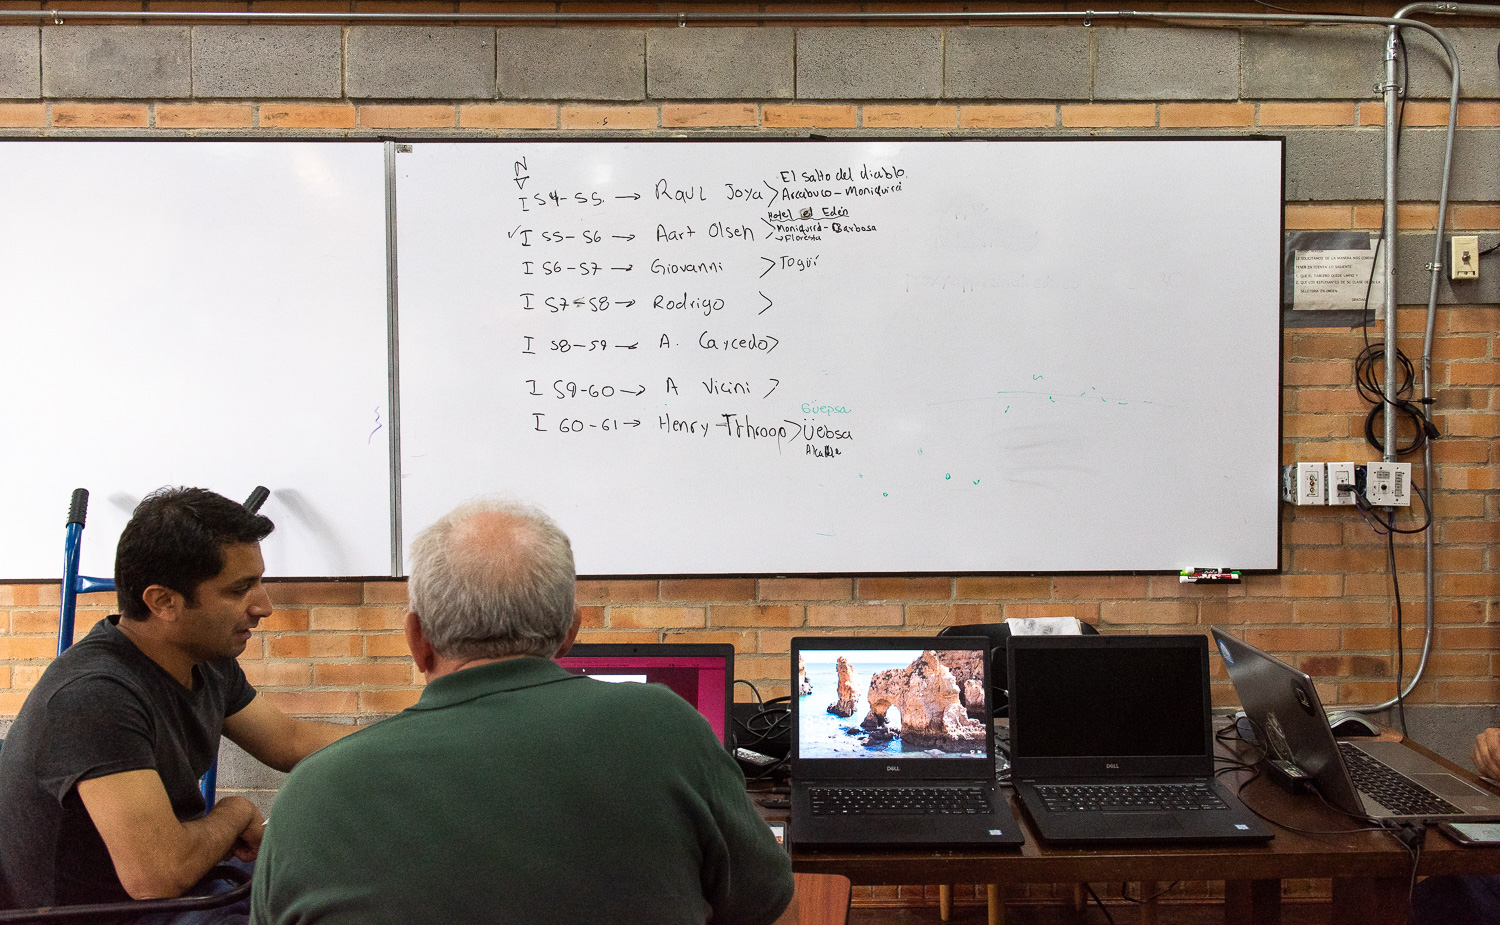 N
I 54-55 → Raul Joya > El salto del diablo.
Arcabuco - Moniquirá
✓ I 55-56 → Aart Olsen > Hotel el Edén
Moniquirá - Barbosa
→ Floresta
I 56-57 → Giovanni > Togüí
I 57-58 → Rodrigo >
I 58-59 → A. Caycedo >
I 59-60 → A Vicini >
Güepsa
I 60-61 → Henry Tthroop > Üebsa
DELL
DELL